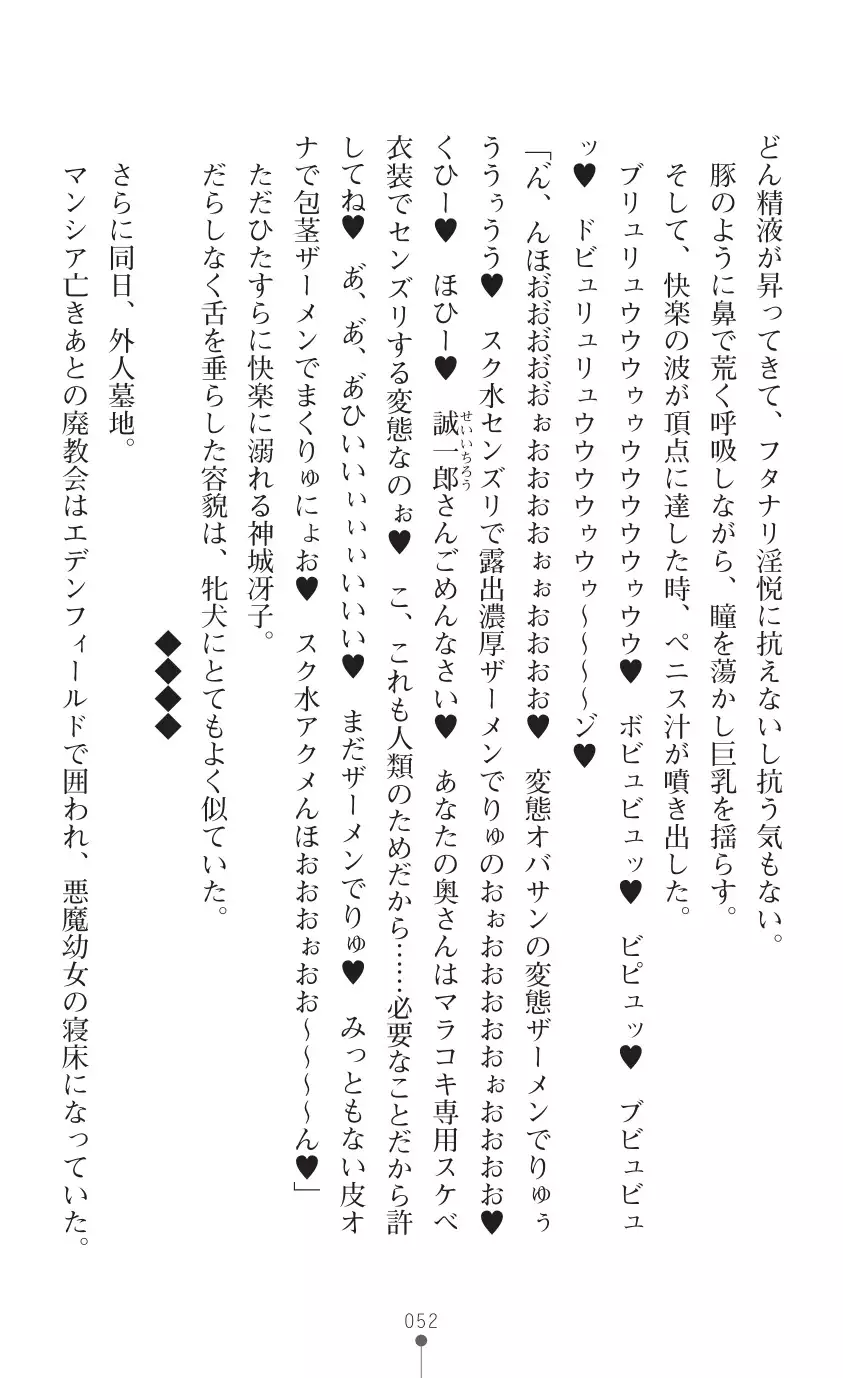 どん精液が昇ってきて、フタナリ淫悦に抗えないし抗う気もない。
豚のように鼻で荒く呼吸しながら、瞳を蕩かし巨乳を揺らす。
そして、快楽の波が頂点に達した時、ペニス汁が噴き出した。
ブリュリュウウウゥゥウウウウウゥウウ♥　ボビュビュッ♥　ビピュッ♥　ブビュビュ
ッ♥　ドビュリュリュウウウウゥウゥ～～～～ゾ♥
「ん゛、んほお゛お゛お゛お゛お゛ぉおおおおぉぉおおおお♥　変態オバサンの変態ザーメンでりゅぅ
ううぅうう♥　スク水センズリで露出濃厚ザーメンでりゅのおぉおおおおおぉおおおお♥
くひー♥　ほひー♥　誠一郎さんごめんなさい♥　あなたの奥さんはマラコキ専用スケベ
せいいちろう
衣装でセンズリする変態なのぉ♥　こ、これも人類のためだから……必要なことだから許
してね♥　あ゛、あ゛、あ゛ひいいぃいぃいいい♥　まだザーメンでりゅ♥　みっともない皮オ
ナで包茎ザーメンでまくりゅにょお♥　スク水アクメんほおおおぉおお～～～～ん♥」
ただひたすらに快楽に溺れる神城冴子。
だらしなく舌を垂らした容貌は、牝犬にとてもよく似ていた。
◆◆◆◆
さらに同日、外人墓地。
マンシア亡きあとの廃教会はエデンフィールドで囲われ、悪魔幼女の寝床になっていた。
052